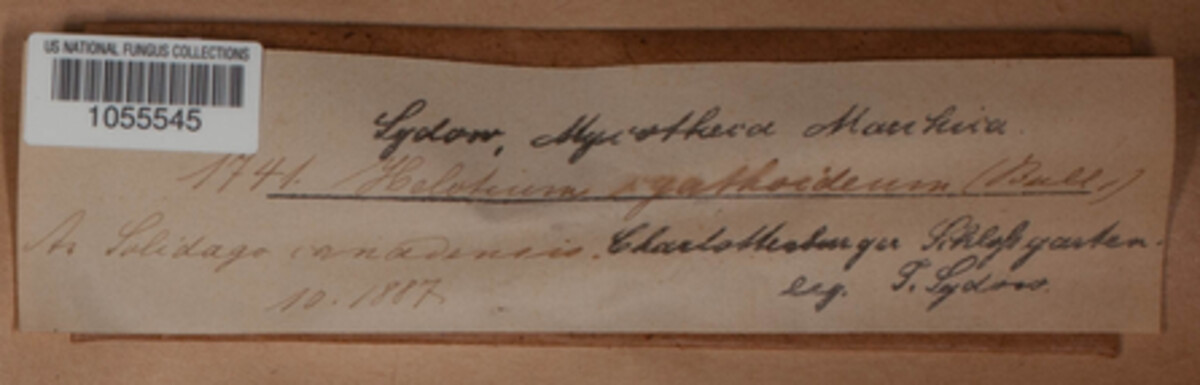 US NATIONAL FUNGUS COLLECTIONS
1055545
Sydow, Mycotheca Marchica.
1741. Helotium agathoideum (Bull.)
An Solidago canadensis. Charlottenburger Schloßgarten.
10. 1887. leg. P. Sydow.